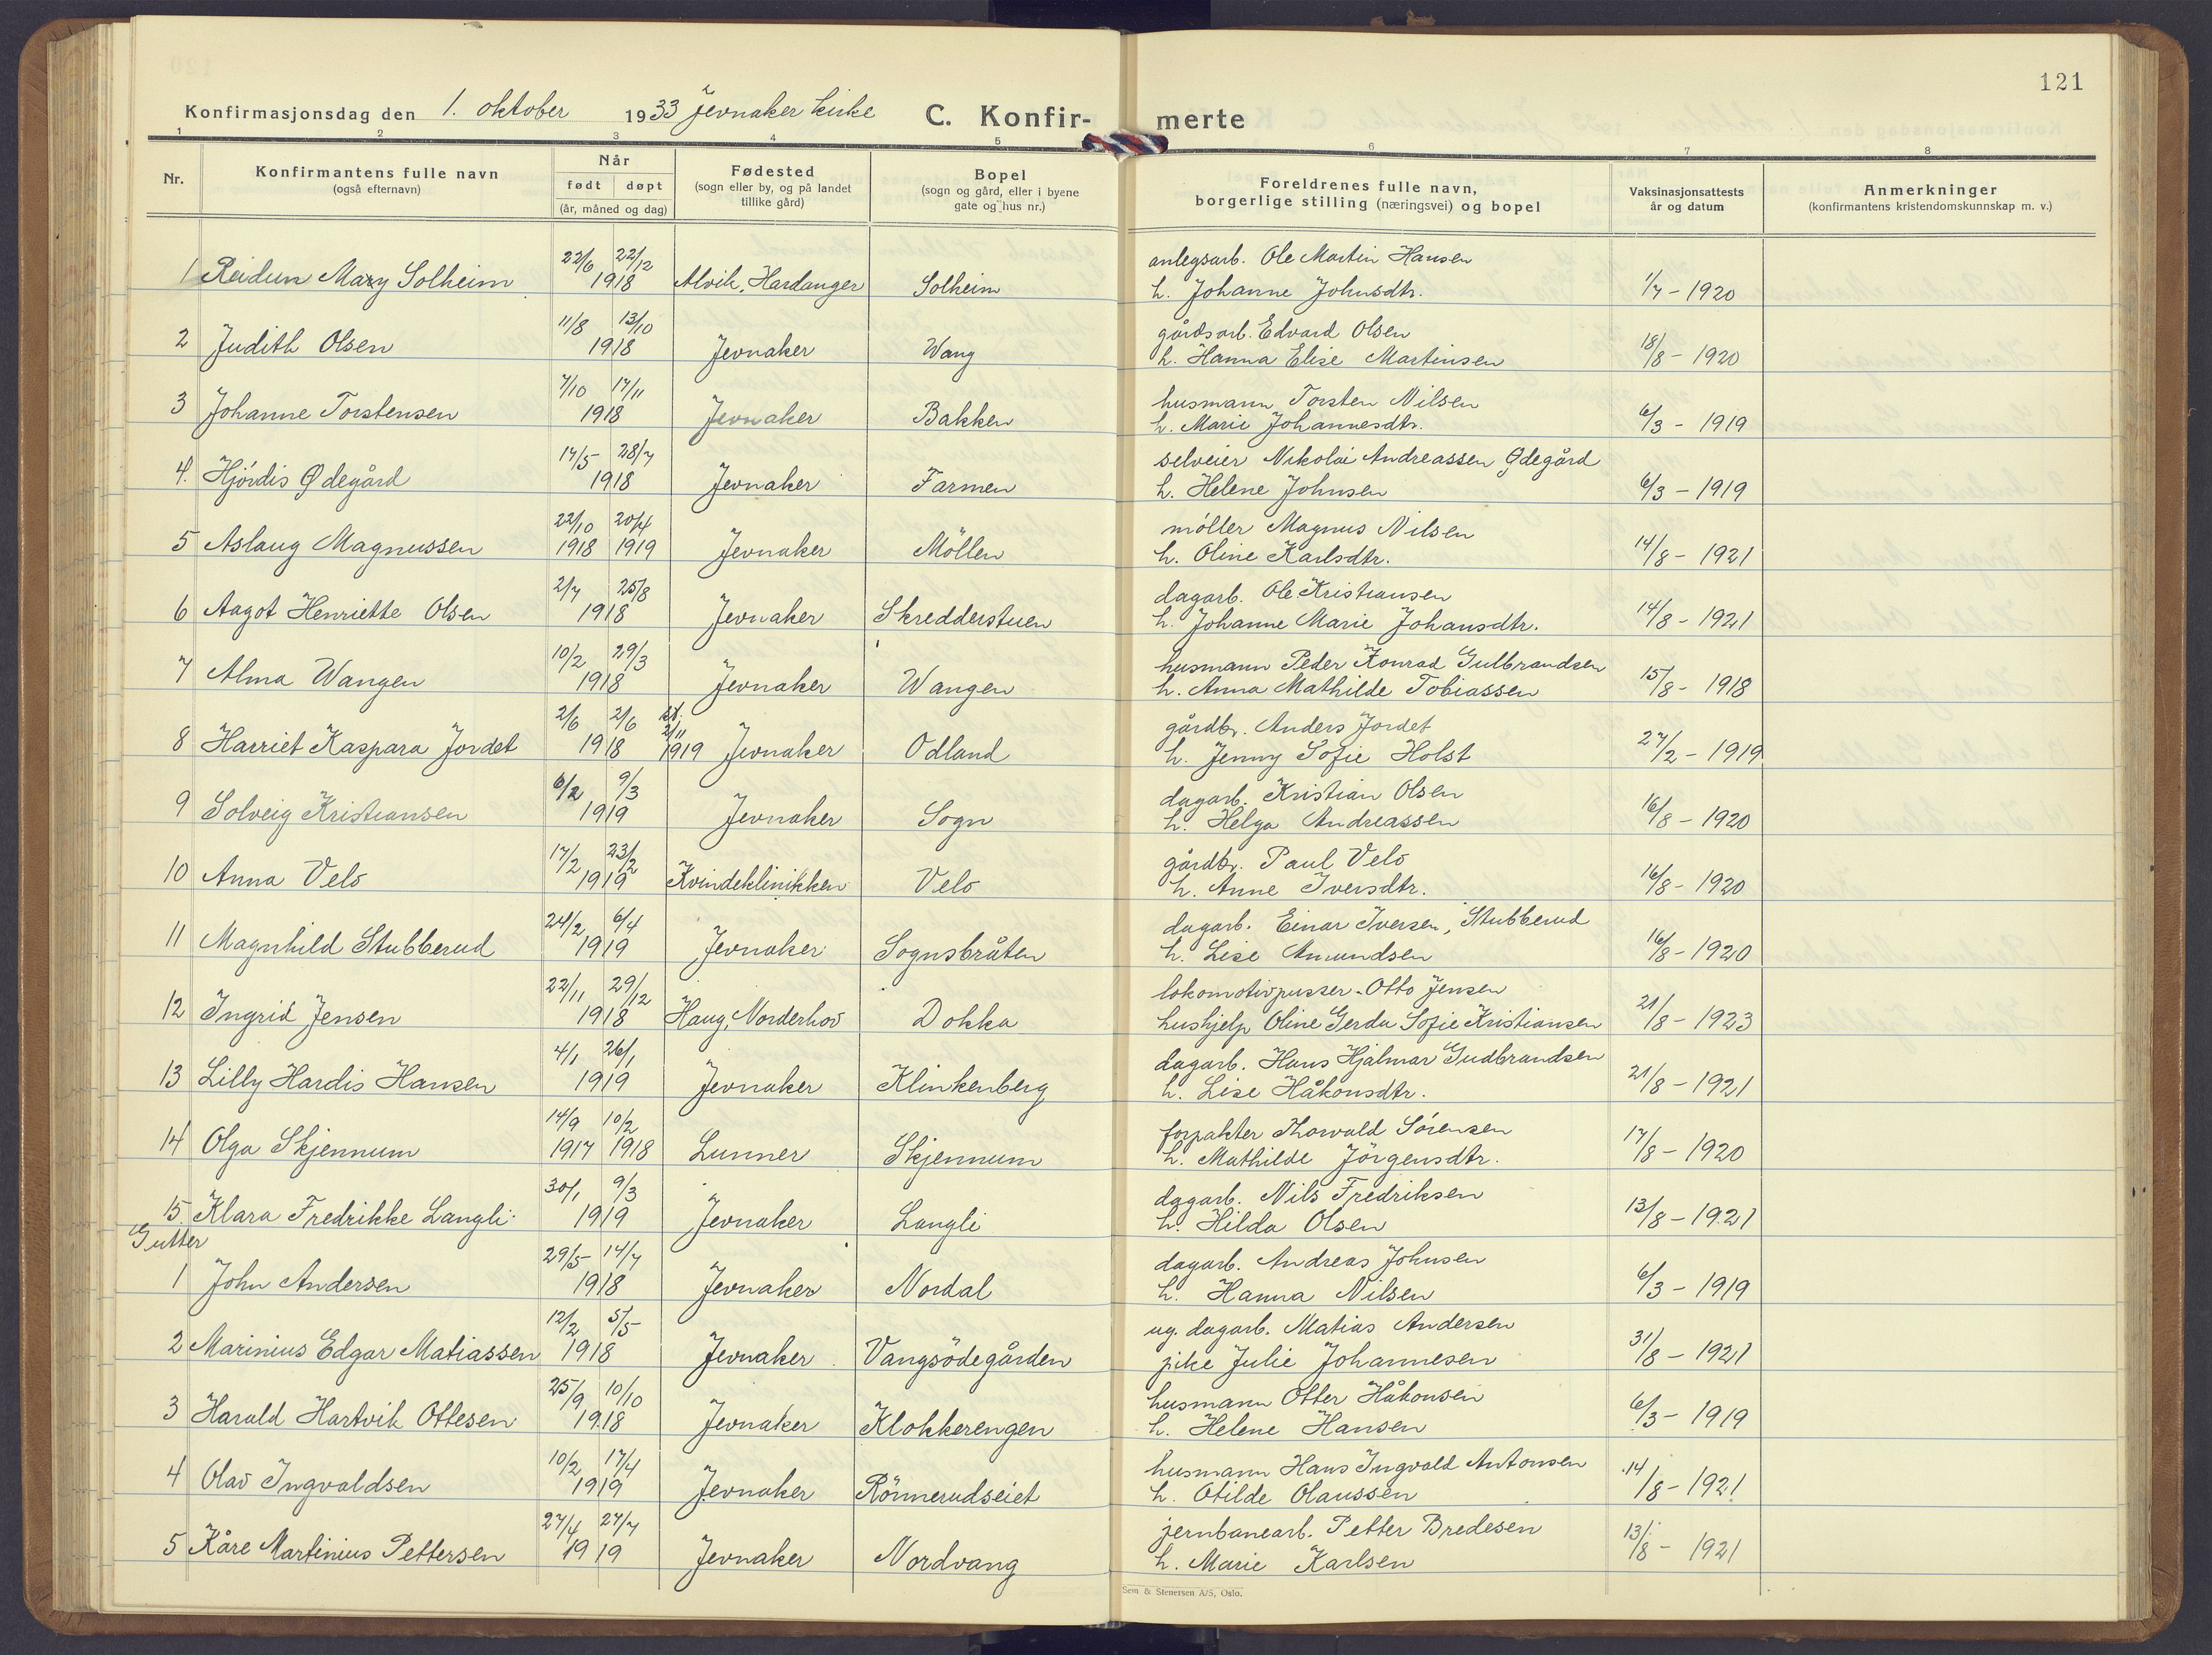 121
Konfirmasjonsdag den 1. oktober 1933 Jevnaker kirke C. Konfir- merte
1 2 3 4 5 6 7 8
Nr. Konfirmantens fulle navn (også efternavn) Når født døpt (år, måned og dag) Fødested (sogn eller by, og på landet tillike gård) Bopel (sogn og gård, eller i byene gate og hus nr.) Foreldrenes fulle navn, borgerlige stilling (næringsvei) og bopel Vaksinasjonsattests år og datum Anmerkninger (konfirmantens kristendomskunnskap m. v.)
22/6 22/12 anlegsarb. Ole Martin Hansen
1 Reidun Mary Solheim 1918 Alvik, Hardanger Solheim h. Johanne Johnsdtr. 1/7 - 1920
11/8 13/10 gårdsarb. Edvard Olsen
2 Judith Olsen 1918 Jevnaker Wang h. Hanna Elise Martinsen 18/8 - 1920
7/10 17/11 husmann Torsten Nilsen
3 Johanne Torstensen 1918 Jevnaker Bakken h. Marie Johannesdtr. 6/3 - 1919
17/5 28/7 selveier Nikolai Andreassen Ødegård
4. Hjördis Ødegård 1918 Jevnaker Farmen h. Helene Johnsen 6/3 - 1919
22/10 20/4 möller Magnus Nilsen
5 Aslaug Magnussen 1918 1919 Jevnaker Möllen h. Oline Karlsdtr. 14/8 - 1921
2/7 25/8 dagarb. Ole Kristiansen
6 Aagot Henriette Olsen 1918 Jevnaker Skredderstuen h. Johanne Marie Johansdtr. 14/8 - 1921
10/2 29/3 husmann Peder Konrad Gulbrandsen
7 Alma Wangen 1918 Jevnaker Wangen h. Anna Mathilde Tobiassen 15/8 - 1918
2/6 2/6 2/11 gårdbr. Anders Jordet
8 Harriet Kaspara Jordet 1918 1919 Jevnaker Odland h. Jenny Sofie Holst 27/2 - 1919
6/2 9/3 dagarb. Kristian Olsen
9 Solveig Kristiansen 1919 Jevnaker Sogn h. Helga Andreassen 16/8 - 1920
17/2 23/2 gårdbr. Paul Velo
10 Anna Velo 1919 Kvindeklinikken Velo h. Anne Iversdtr. 16/8 - 1920
24/2 6/4 dagarb. Einar Iversen, Stubberud
11 Magnhild Stubberud 1919 Jevnaker Sognsbråten h. Lise Amundsen 16/8 - 1920
22/11 29/12 lokomotivpusser Otto Jensen
12 Ingrid Jensen 1918 Haug, Norderhov Dokka hushjelp Oline Gerda Sofie Kristiansen 21/8 - 1923
4/1 26/1 dagarb. Hans Hjalmar Gudbrandsen
13 Lilly Hardis Hansen 1919 Jevnaker Klinkenberg h. Lise Håkonsdtr. 21/8 - 1921
14/9 10/2 forpakter Thorvald Sörensen
14 Olga Skjennum 1917 1918 Lunner Skjennum h. Mathilde Jörgensdtr. 17/8 - 1920
30/1 9/3 dagarb. Nils Fredriksen
15. Klara Fredrikke Langli 1919 Jevnaker Langli h. Hilda Olsen 13/8 - 1921
Gutter
29/5 14/7 dagarb. Andreas Johnsen
1 John Andersen 1918 Jevnaker Nordal h. Hanna Nilsen 6/3 - 1919
12/2 5/5 ug. dagarb. Matias Andersen
2 Marinius Edgar Matiassen 1918 Jevnaker Vangsödegården pike Julie Johannesen 31/8 - 1921
25/9 10/10 husmann Otter Håkonsen
3 Harald Hartvik Ottesen 1918 Jevnaker Klokkerengen h. Helene Hansen 6/3 - 1919
10/2 17/4 husmann Hans Ingvald Antonsen
4 Olav Ingvaldsen 1919 Jevnaker Rönnerudseiet h. Otilde Olaussen 14/8 - 1921
27/4 27/7 jernbanearb. Petter Bredesen
5 Kåre Martinius Pettersen 1919 Jevnaker Nordvang h. Marie Karlsen 13/8 - 1921
Sem & Stenersen A/S, Oslo.